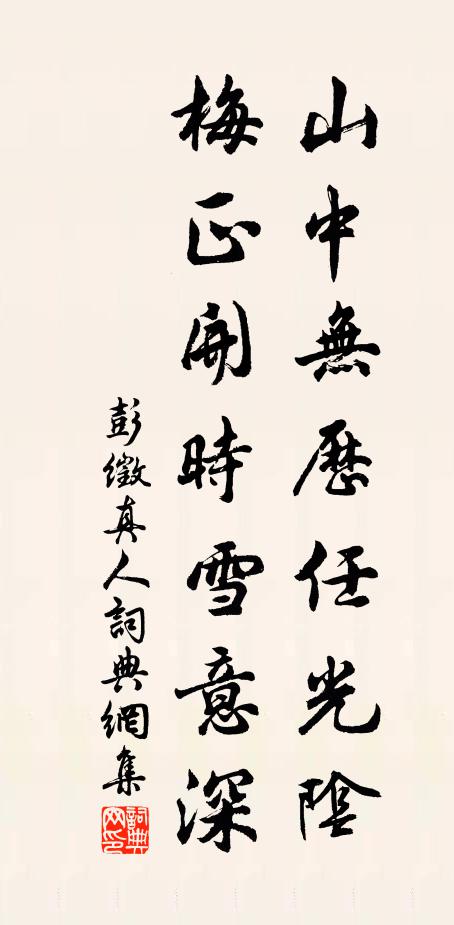 山中無歷任光陰
梅正開時雪意深
彭徵真人詞典網集
詞典網印